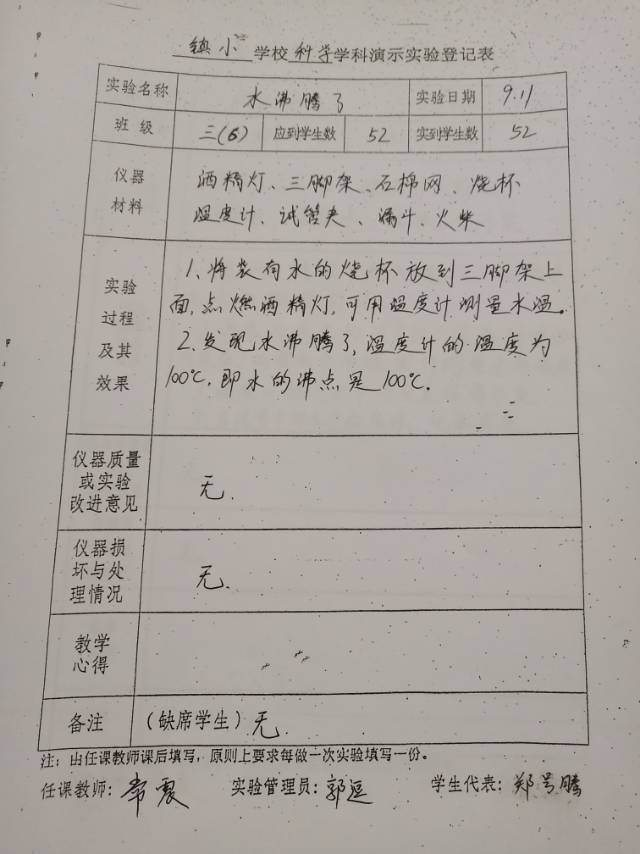 镇小学校科学学科演示实验登记表
实验名称 水沸腾了 实验日期 9.11
班级 三(6) 应到学生数 52 实到学生数 52
仪器材料
酒精灯、三脚架、石棉网、烧杯
温度计、试管夹、漏斗、火柴
实验过程及其效果
1、将装有水的烧杯放到三脚架上
面,点燃酒精灯,可用温度计测量水温。
2、发现水沸腾了,温度计的温度为
100℃,即水的沸点是100℃.
仪器质量或实验改进意见
无.
仪器损坏与处理情况
无.
教学心得
备注 (缺席学生)无.
注:由任课教师课后填写,原则上要求每做一次实验填写一份。
任课教师:常震 实验管理员:郭 学生代表:郑 腾